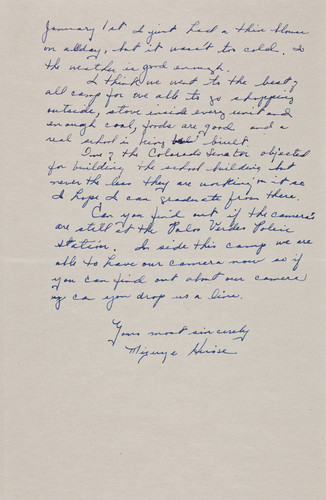 January 1st I just had a thin blouse
on allday, but it wasn't too cold. So
the weather is good enough.
I think we went to the best of
all camp for we able to go shopping
outside, stove inside every unit and
enough coal, foods are good and a
real school is being built.
One of the Colorado Senator objected
for building the school building but
never the less they are working on it so
I hope I can graduate from there.
Can you find out if the cameras
are still at the Palos Verdes Police
Station. In side this camp we are
able to have our camera now so if
you can find out about our camera
ca you drop us a line.
Yours most sincerely